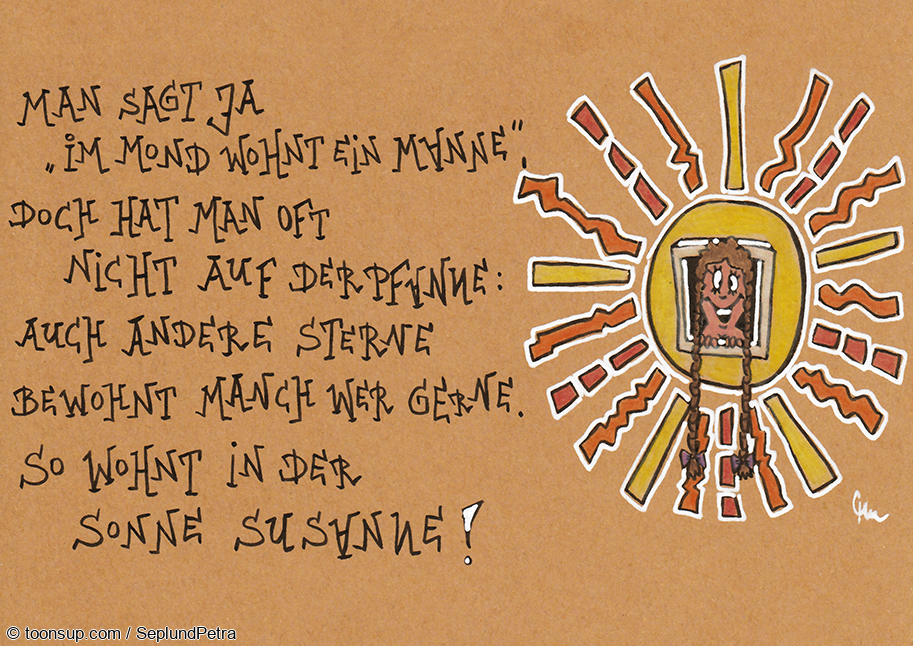 MAN SAGT JA
„IM MOND WOHNT EIN MANNE“.
DOCH HAT MAN OFT
NICHT AUF DER PFANNE:
AUCH ANDERE STERNE
BEWOHNT MANCH WER GERNE.
SO WOHNT IN DER
SONNE SUSANNE!
© toonsup.com / SeplundPetra